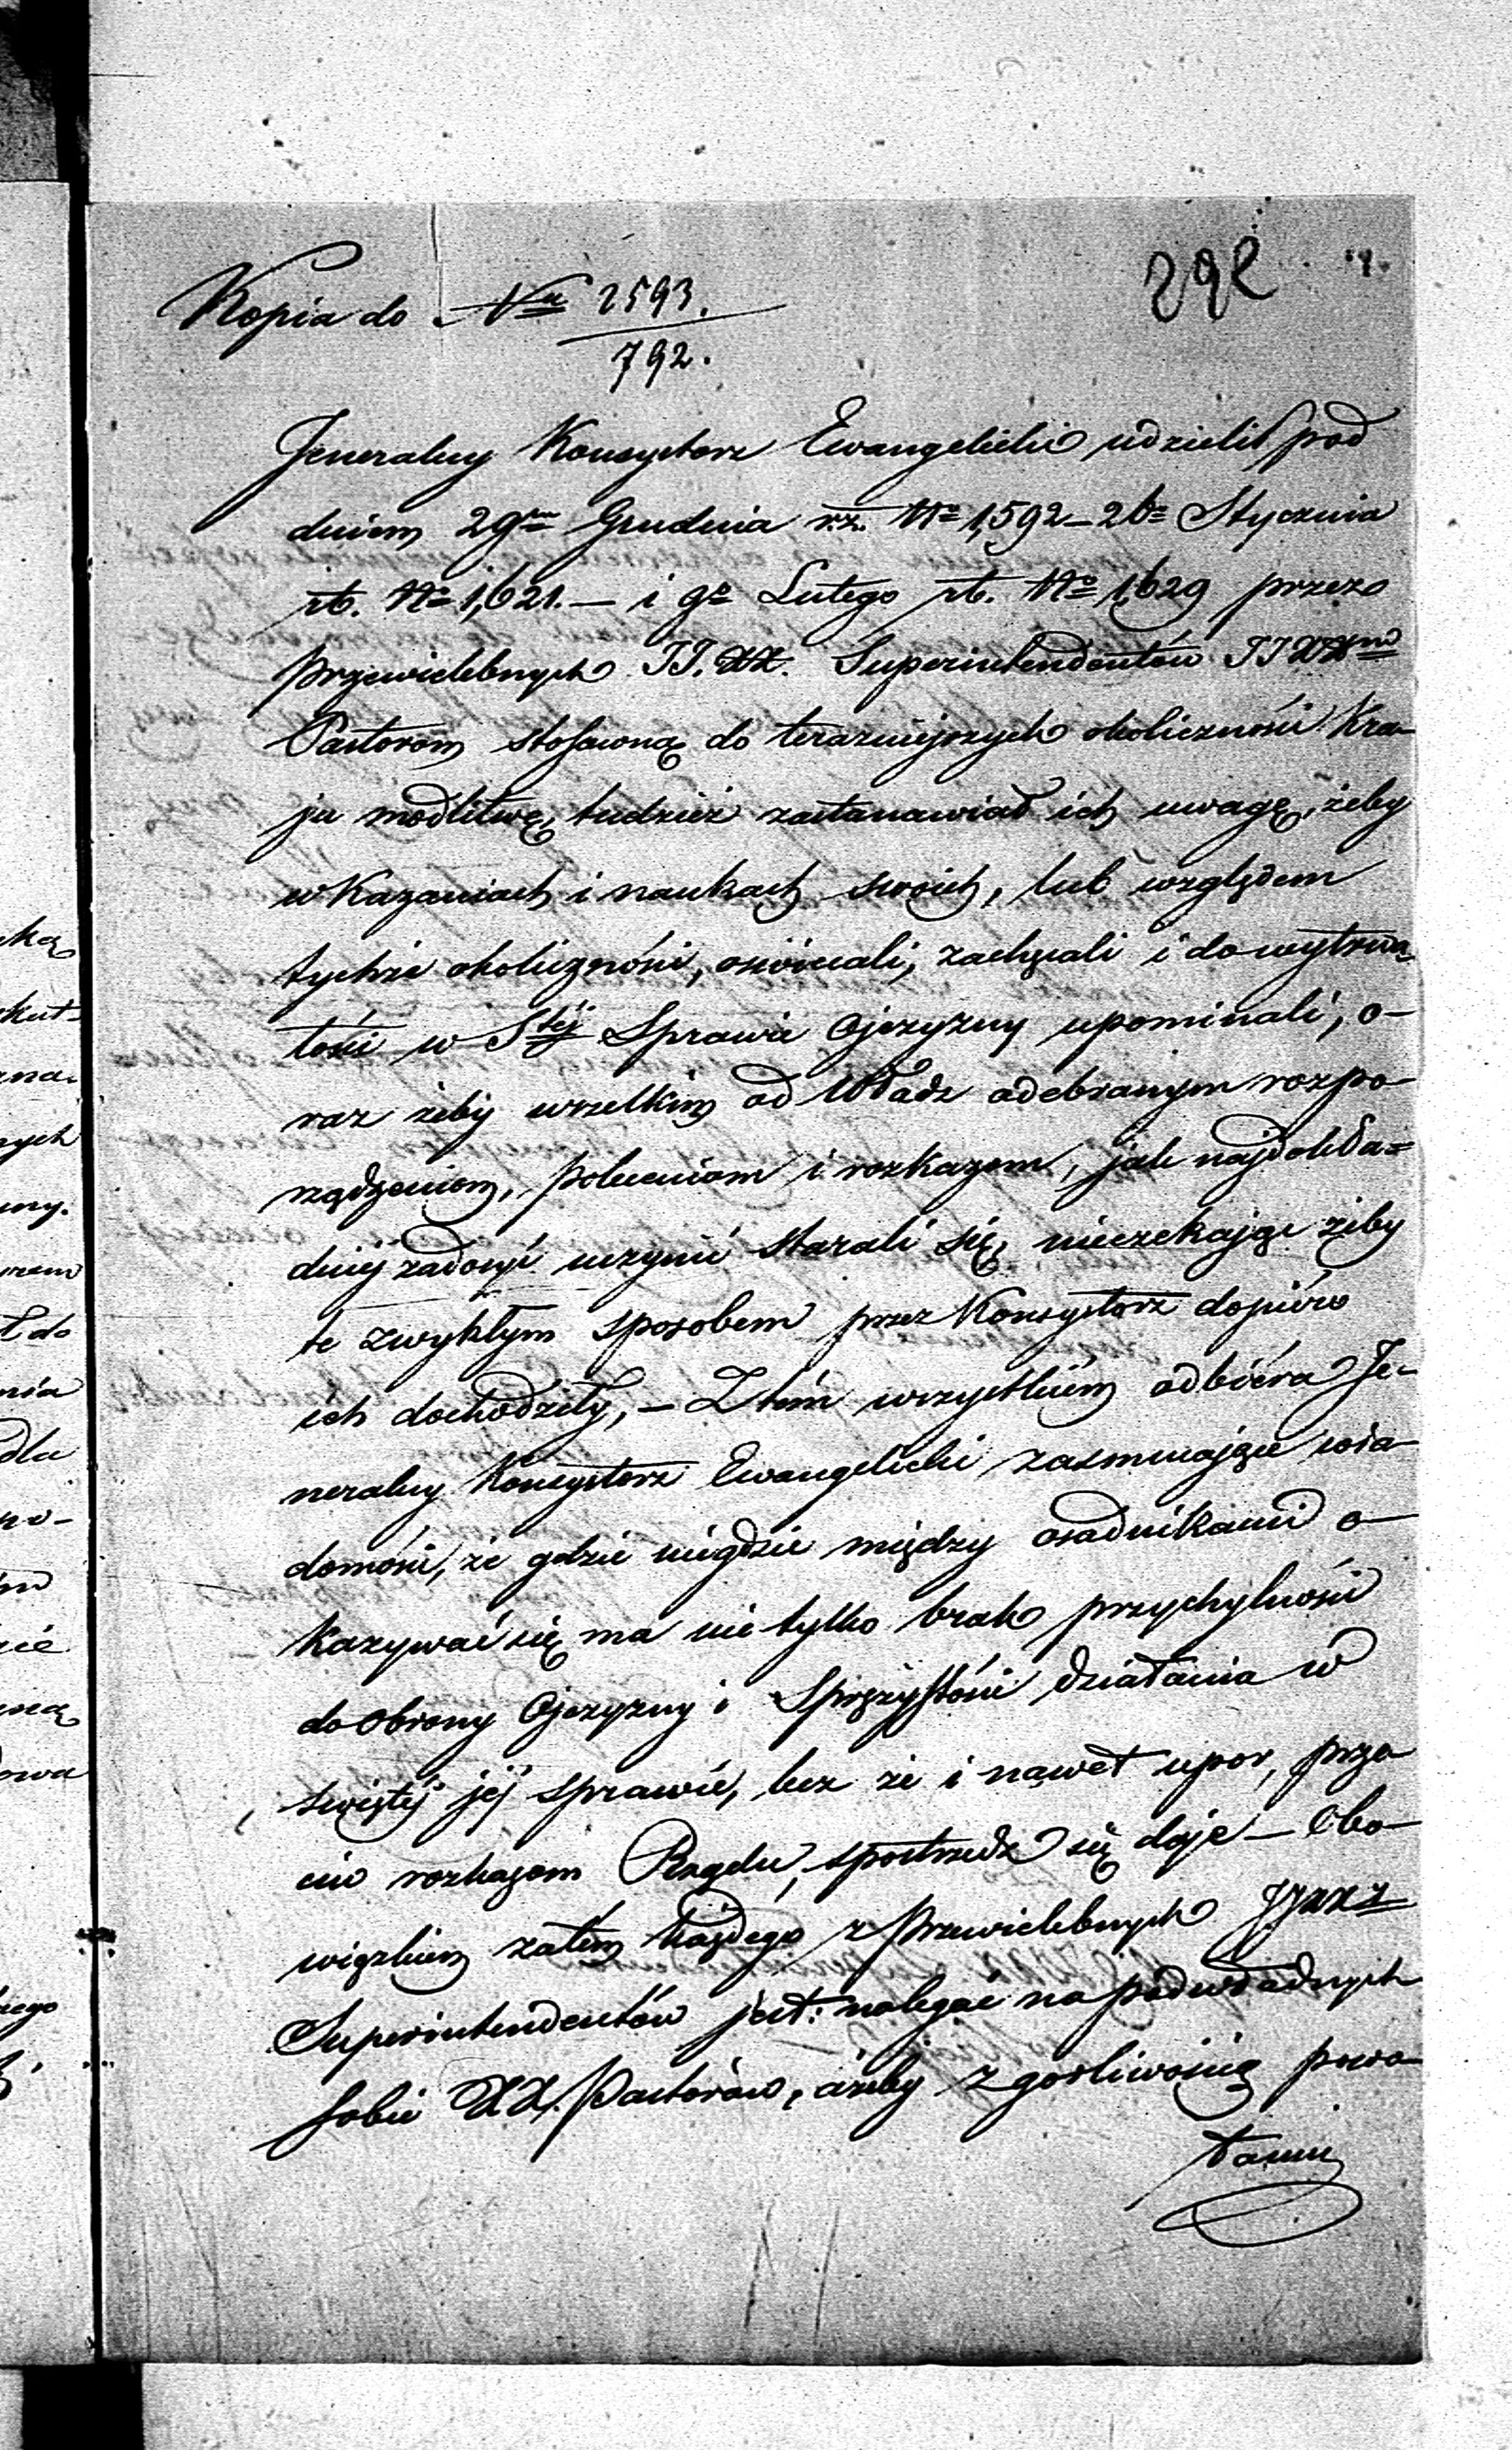 292
Kopia do Nu 2593.
792.
Jeneralny Konsystorz Ewangelicki udzielił pod
dniem 29m Grudnia r.z. No 1,592 – 26o Stycznia
rb. No 1,621. – i 9o Lutego rb. No 1,629 przez
przewielebnych JJ. XX. Superintendentów JJ XXm
Pastorom stosowną do teraźniejszych okoliczności Kra-
ju modlitwę, tudzież zastanawiał ich uwagę, żeby
w Kazaniach i naukach swoich, lub względem
tychże okoliczności, oświecali, zachęcali i do wytrwa-
łości w Stéj Sprawie Ojczyzny upominali, o-
raz żeby wszelkim od Władz odebranym rozpo-
rządzeniom, poleceniom i rozkazom, jak najdokła-
dniéj zadosyć uczynić starali się, nieczekając żeby
te zwykłym sposobem przez Konsystorz dopiéro
ich dochodziły, – Z tém wszystkiém odbiéra Je-
neralny Konsystorz Ewangelicki zasmucające wia-
domości, że gdzie niegdzie między osadnikami o-
kazywać się ma nie tylko brak przychylności
do obrony Ojczyzny i Sprężystości działania w
świętéj jéj sprawie, lecz że i nawet upor, prze-
ciw rozkazom Rządu, spostrzedz się daje – Obo-
wiązkiem zatém każdego z Przewielebnych JJXX
Superintendentów jest: nalegać na podwładnych
sobie XX. Pastorów, ażeby z gorliwością powo-
łaniu